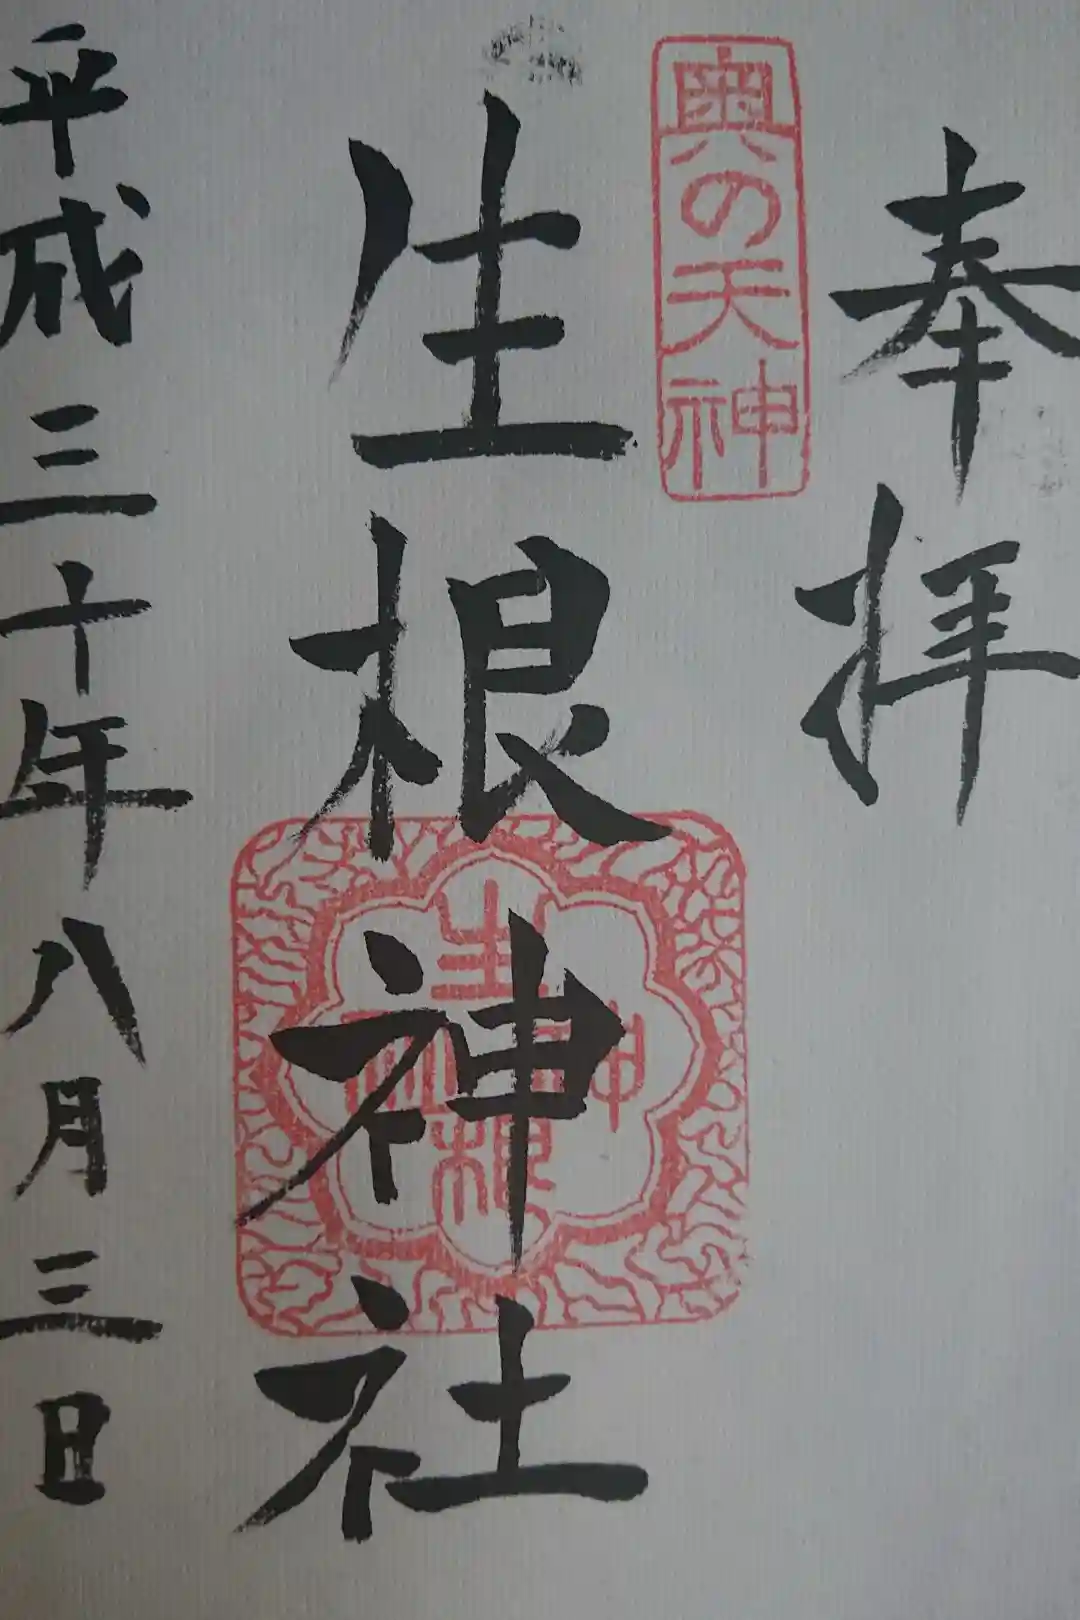 奉拝
奥の天神
生根神社
生根神社
平成三十年八月三日